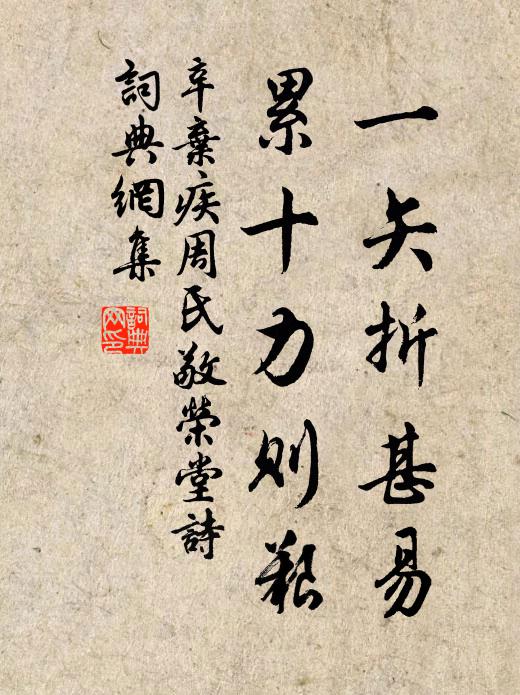 一矢折甚易
累十力则艱
辛棄疾周氏敬榮堂詩
詞典網集
詞典
网印